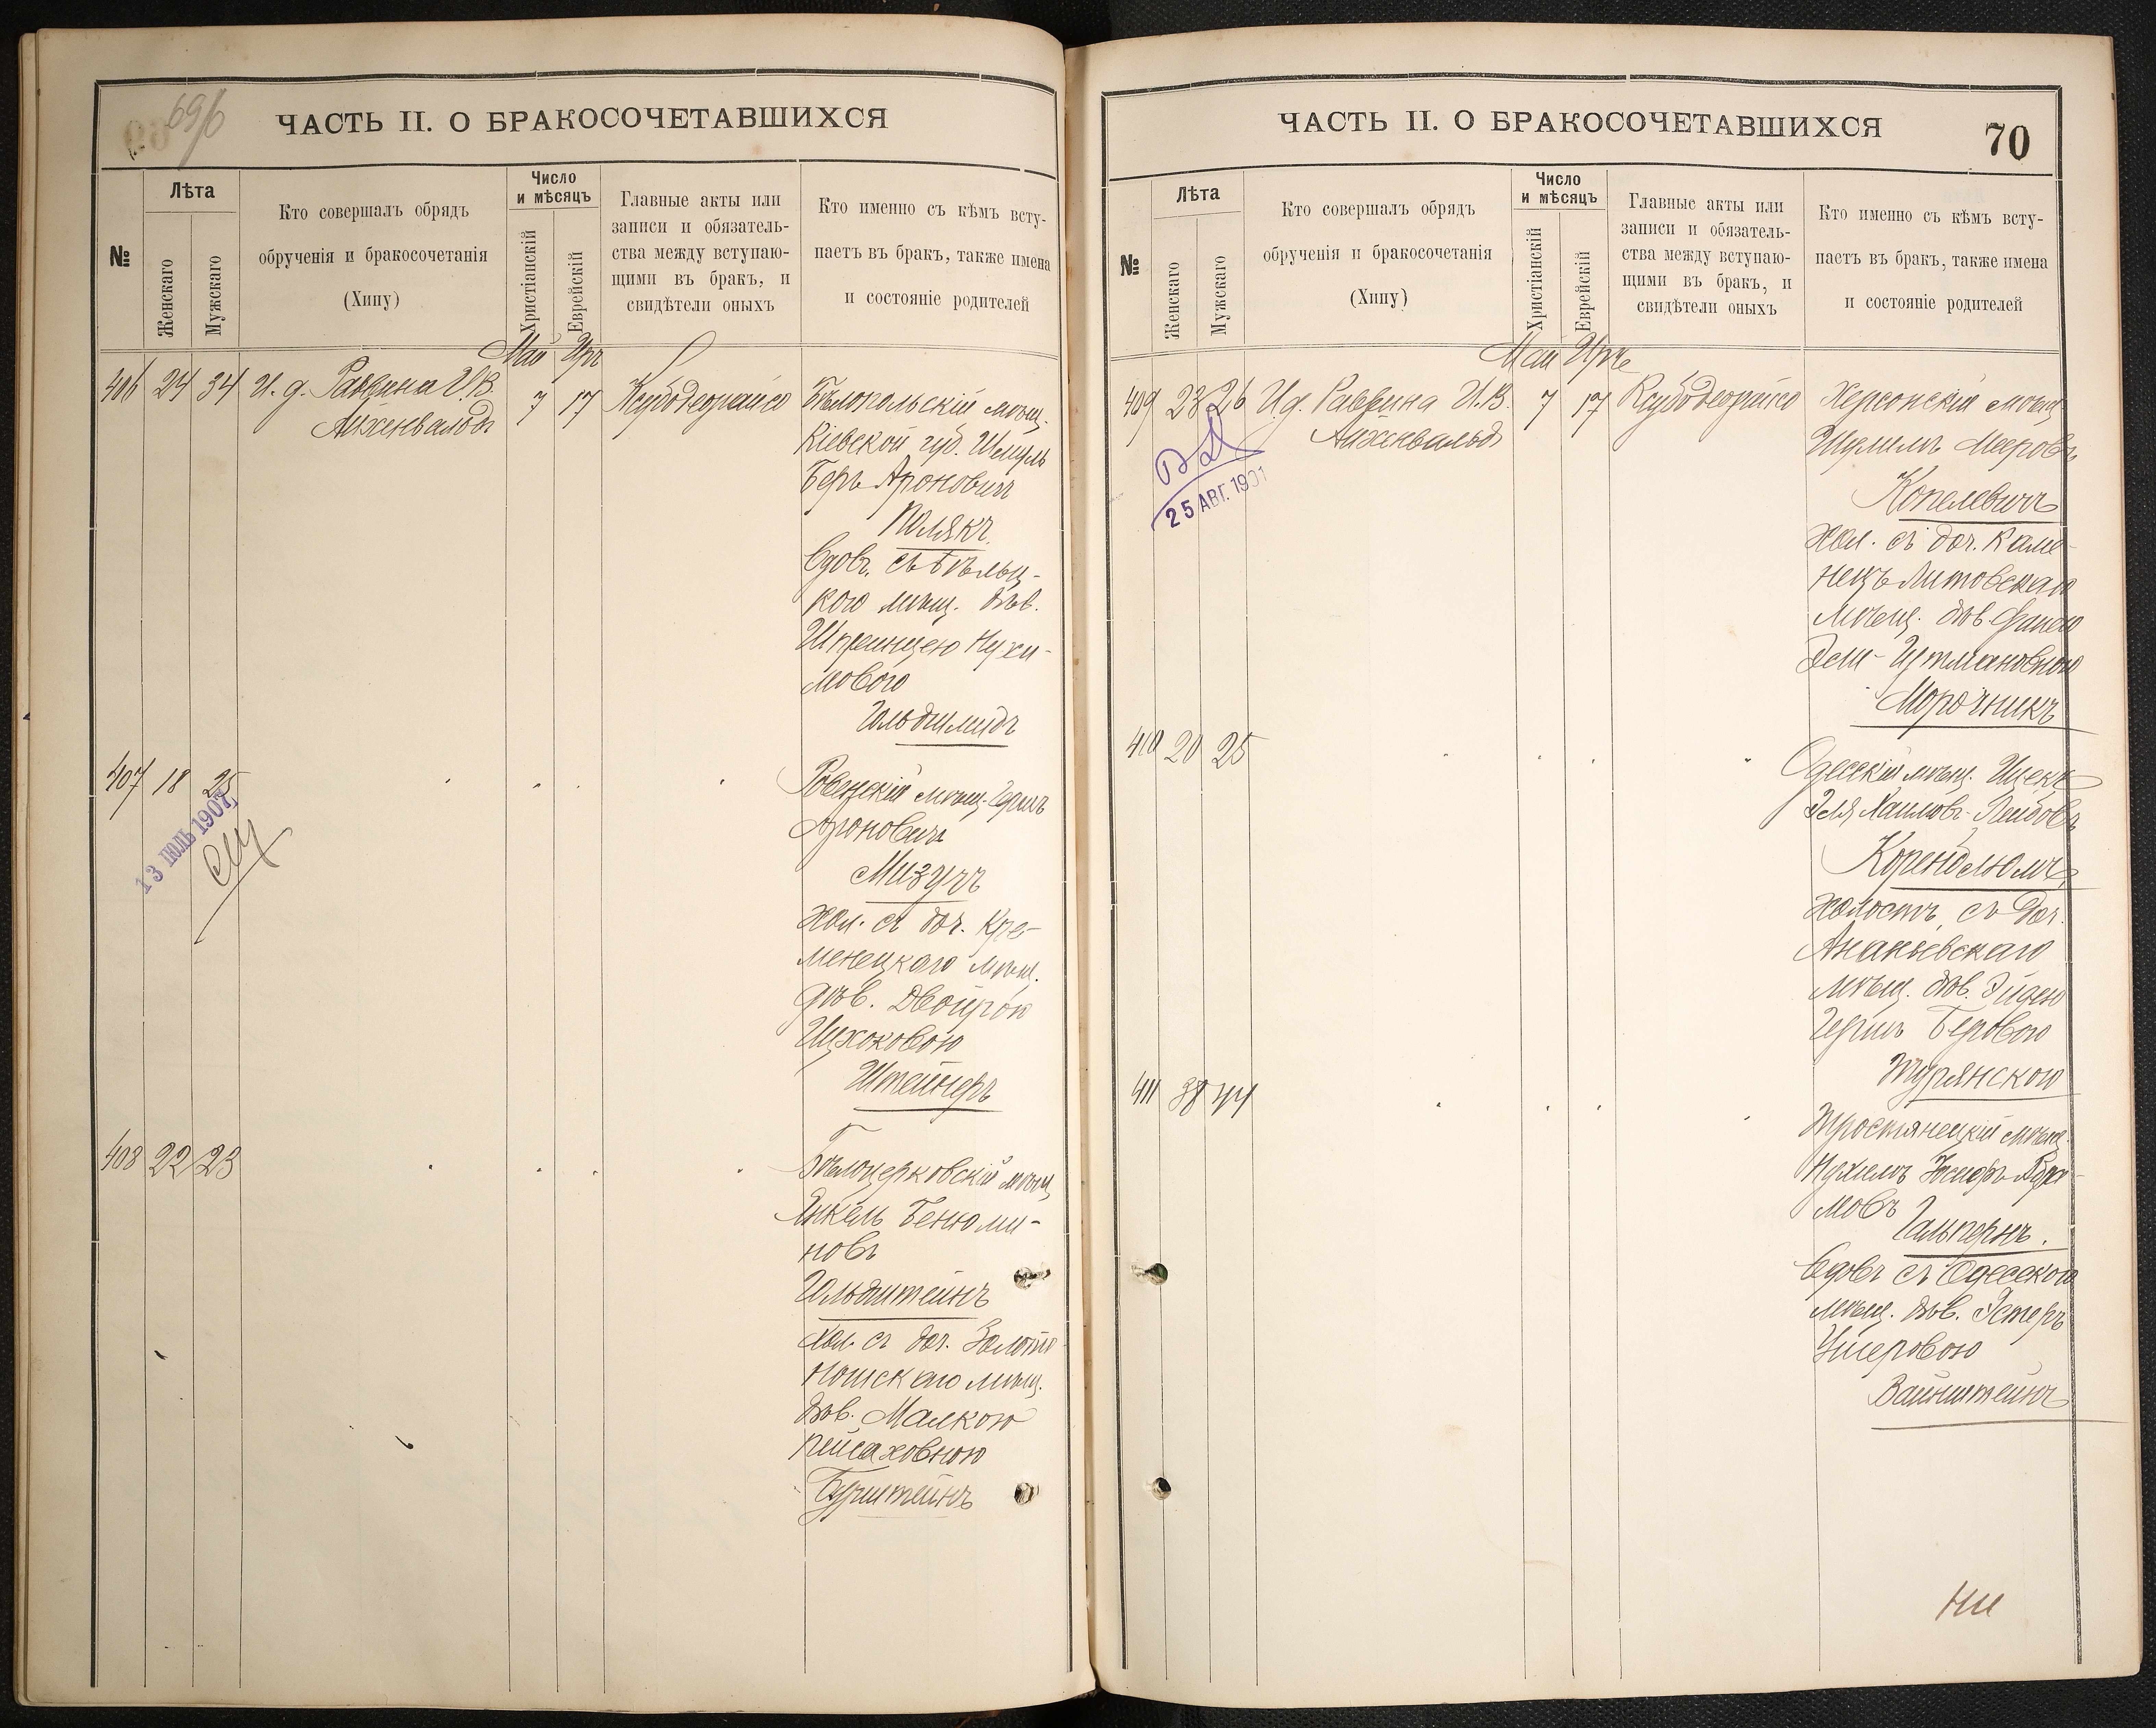 69/б
ЧАСТЬ II. О БРАКОСОЧЕТАВШИХСЯ
№
Лѣта
Женскаго
Мужскаго
Кто совершалъ обрядъ
обрученія и бракосочетанія
(Хипу)
Число
и мѣсяцъ
Христіанскій
Еврейскій
Главные акты или
записи и обязатель-
ства между вступаю-
щими въ бракъ, и
свидѣтели оныхъ
Кто именно съ кѣмъ всту-
паетъ въ бракъ, также имена
и состояніе родителей
Май Iръ
406 24 34 И. д. Раввина И.В.
Айхенвальдъ
7 17
Бѣлопольскій мѣщ.
Кіевской губ. Шмуль
Беръ Ароновичъ
Полякъ.
Вдов. съ Бѣльц-
кою мѣщ. дѣв.
Шпринцею Нухи-
мовою
Гольдшмидъ
407 18 25
13 ІЮЛЬ 1907
Ровенскій мѣщ. Гершъ
Ароновичъ
Мизучъ
хол. съ доч. Кре-
менецкаго мѣщ.
дѣв. Двойрою
Ицхоковою
Штейнеръ
408 22 23
Бѣлоцерковскій мѣщ
Янкель Бенюми-
новъ
Гольдштейнъ
хол. съ доч. Золото
ношскаго мѣщ.
дѣв. Малкою
Пейсаховною
Бурштейнъ
ЧАСТЬ II. О БРАКОСОЧЕТАВШИХСЯ
70
№
Лѣта
Женскаго
Мужскаго
Кто совершалъ обрядъ
обрученія и бракосочетанія
(Хипу)
Число
и мѣсяцъ
Христіанскій
Еврейскій
Главные акты или
записи и обязатель-
ства между вступаю-
щими въ бракъ, и
свидѣтели оныхъ
Кто именно съ кѣмъ всту-
паетъ въ бракъ, также имена
и состояніе родителей
Май
409 23 26 И д. Раввина И.В.
Айхенвальдъ
7 17
25 АВГ. 1901
Херсонскій мѣщ
Шулимъ Мееровъ
Копелевичъ
Хол. съ доч. Каме-
нецъ Литовскаго
мѣщ. дѣв. Фанею
Морочникъ
410 20 25
Одесскій мѣщ. Ицекъ
Эля Хаимовъ-Лейбовъ
Коренблюмъ,
холостъ, съ доч.
Ананьевскаго
мѣщ. дѣв. Эйдею
Гершъ Беровою
Турянскою
411 38 44
Тростянецкій мѣщ.
мовъ
Гальпернъ.
Вдовъ съ Одесскою
мѣщ. дѣв. Эстеръ
Ушеровою
Вайнштейнъ